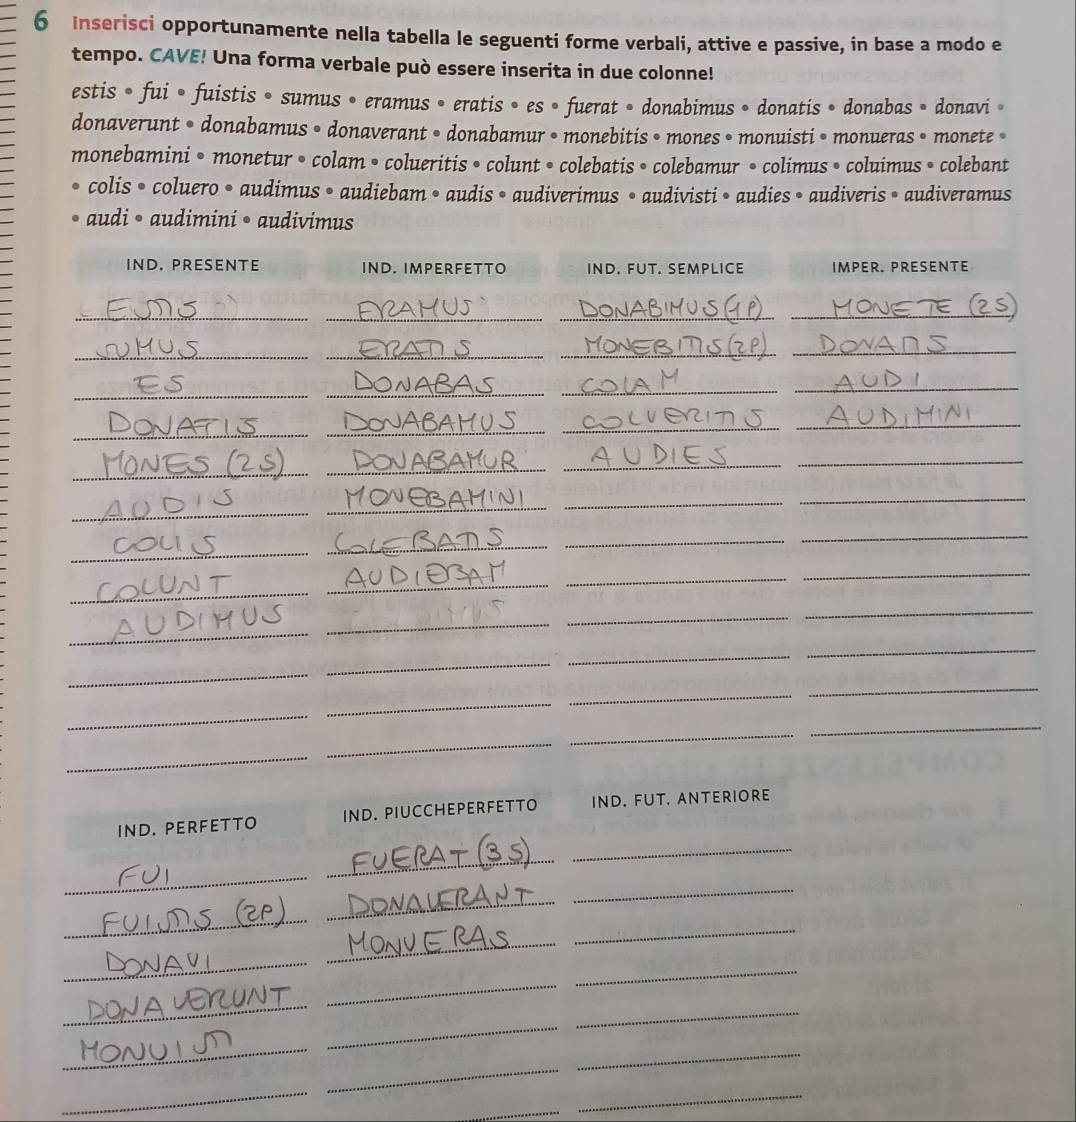 6 Inserisci opportunamente nella tabella le seguenti forme verbali, attive e passive, in base a modo e
tempo. CAVE! Una forma verbale può essere inserita in due colonne!
estis • fui • fuistis • sumus • eramus • eratis • es • fuerat • donabimus • donatis • donabas • donavi •
donaverunt • donabamus • donaverant • donabamur • monebitis • mones • monuisti • monueras • monete •
monebamini • monetur • colam • colueritis • colunt • colebatis • colebamur • colimus • coluimus • colebant
• colis • coluero • audimus • audiebam • audis • audiverimus • audivisti • audies • audiveris • audiveramus
• audi • audimini • audivimus
IND. PRESENTE IND. IMPERFETTO IND. FUT. SEMPLICE IMPER. PRESENTE
ESTIS ERAMUS DONABIMUS (1P) MONETE (2S)
SUMUS ERATIS MONEBITIS (2P) DONATIS
ES DONABAS COLAM AUDI
DONATIS DONABAMUS COLUERITIS AUDIMINI
MONES (2S) DONABAMUR AUDIES
AUDIS MONEBAMINI
COLIS COLEBATIS
COLUNT AUDIEBAM
AUDIMUS
IND. PERFETTO IND. PIUCCHEPERFETTO IND. FUT. ANTERIORE
FUI FUERAT (3S)
FUISTIS (2P) DONAVERANT
DONAVI MONUERAS
DONAVERUNT
MONUISTI